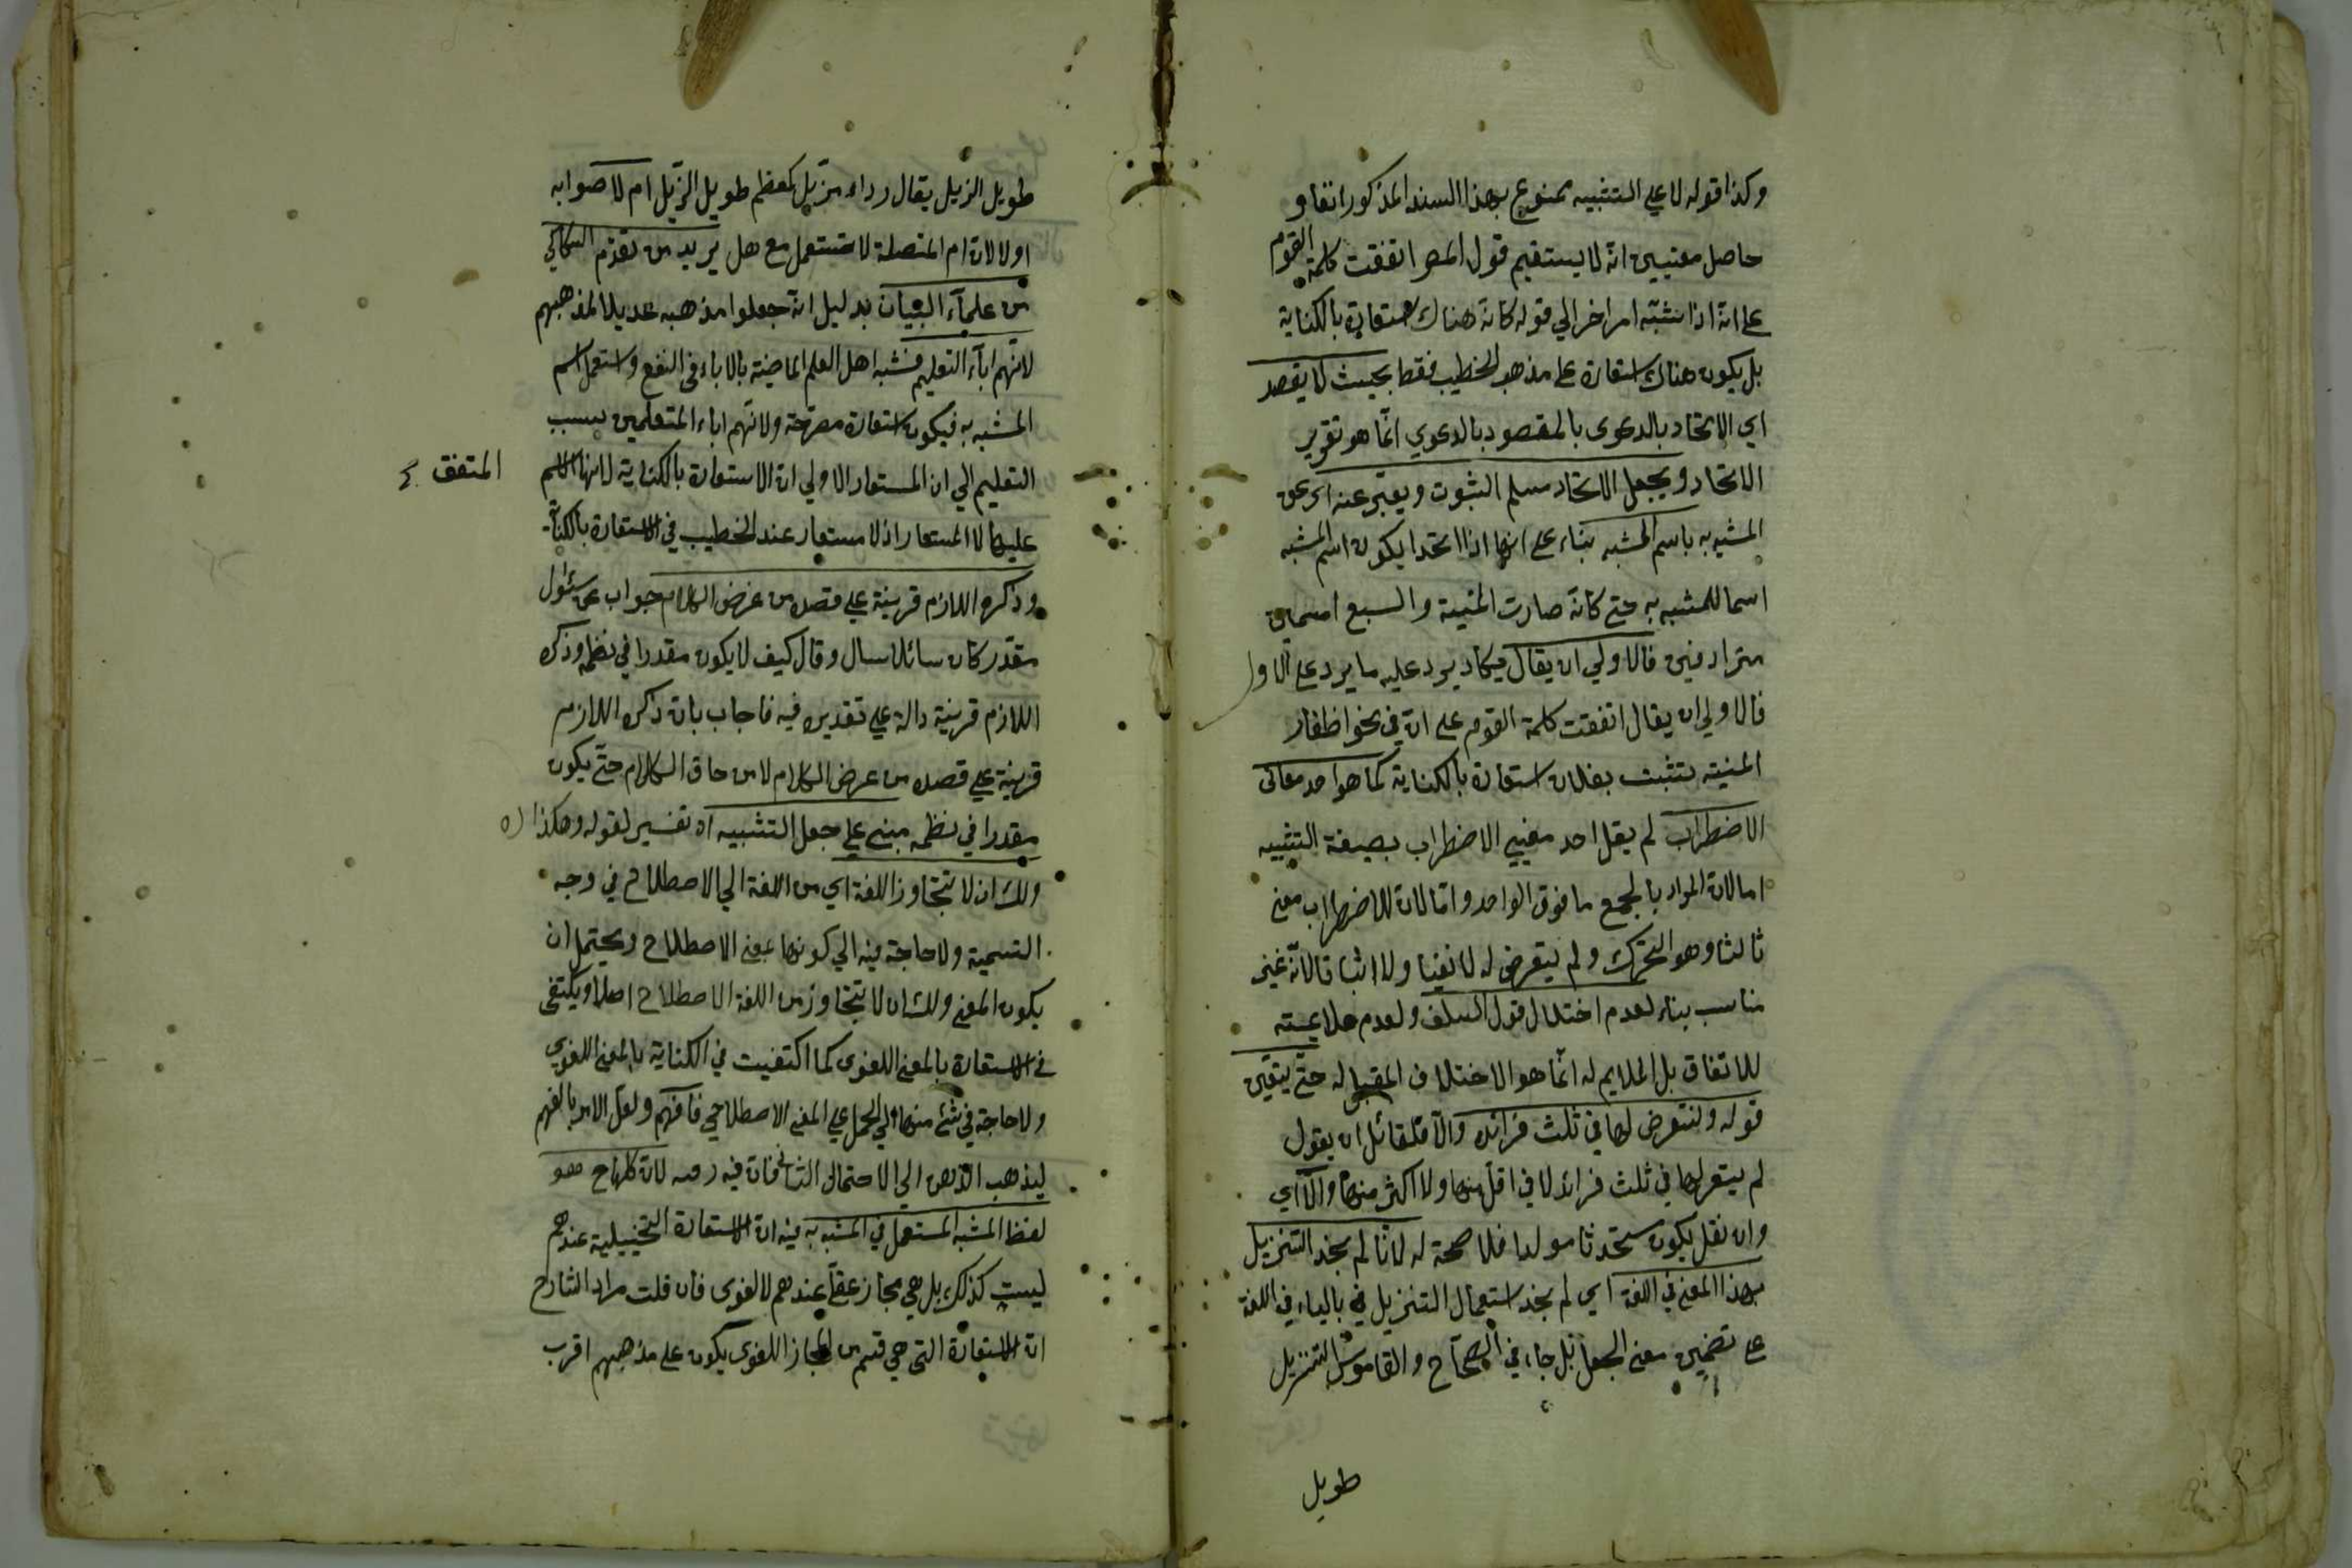 وكذا قوله لا على التشبيه ممنوع بهذا السند المذكور انفا و
حاصل معنيين انه لا يستقيم قول المصر اتفقت كلمة القوم
على انه اذا شبه امر اخر الي قوله كان هناك استعارة بالكناية
بل يكون هناك استعارة على مذهب الخطيب فقط بحيث لا يقصد
اي الاتحاد بالدعوى بالمقصود بالدعوي انما هو تقرير
الاتحاد ويجعل الاتحاد مسلم الثبوت ويعبر عنه اي عن
المشبه به باسم المشبه بناء على انهما اذا اتحدا يكون اسم المشبه
اسما للمشبه به حتى كانه صارت المنية والسبع اسمين
مترادفين فالاولي ان يقال فيكاد يرد عليه ما يرد على الاول
فالاولي ان يقال اتفقت كلمة القوم على انه في نحو اظفار
المنية نشبت بفلان استعارة بالكناية كما هو احد معاني
الاضطراب لم يقل احد معنيي الاضطراب بصيغة التثنية
اما لان المراد بالجمع ما فوق الواحد واما لان للاضطراب معنى
ثالثا وهو التحرك ولم يتعرض له لا نفيا ولا اثباتا لانه غير
مناسب بناء لعدم اختلال قول السلف ولعدم ملايمته
للاتفاق بل الملايم له انما هو الاختلاف المقبل له حتى يتعين
قوله ولنتعرض لها في ثلث فرائد والا فلقائل ان يقول
لم يتعرلها في ثلث فرائد لا في اقل منها ولا اكثر منها والا اي
وان نقل يكون مستحدثا مولدا فلا صحة له لانا لم نجد التنزيل
بهذا المعنى في اللغة اي لم نجد استعمال التنزيل في بالياء في اللغة
على تضمين معنى الجعل بل جاء في الصحاح والقاموس التنزيل
طويل
طويل الزيل يقال رداء مزيل كمعظم طويل الزيل ام لا صوابه
اولا لان ام المتصلة لا تستعمل مع هل يريد من تقدم السكاكي
من علماء البيان بدليل انه جعلوا مذهبه عديلا لمذهبهم
لانهم اباء التعليم فشبه اهل العلم الماضية بالاباء في النفع واستعمل اسم
المشبه به فيكون استعارة مصرحة ولانهم اباء المتعلمين بسبب
التعليم الي ان المستعار الاولي ان الاستعارة بالكناية لانها الاسم
المتفق
عليها لا المستعار اذ لا مستعار عند الخطيب في الاستعارة بالكناية
وذكره اللازم قرينة على قصده من عرض الكلام جواب عن سئوال
مقدر كان سائلا سال وقال كيف لا يكون مقدرا في نظمه وذكره
اللازم قرينة دالة على تقديره فيه فاجاب بان ذكره اللازم
قرينة على قصده من عرض الكلام لا من حاق الكلام حتى يكون
مقدرا في نظمه مبنى على جعل التشبيه اه تفسير لقوله وهكذا
ولك ان لا تتجاوز اللغة اي من اللغة الي الاصطلاح في وجه
التسمية ولا حاجة فيه الي كونها بمعنى الاصطلاح ويحتمل ان
يكون المعنى ولك ان لا تتجاوز من اللغة الاصطلاح اصلا ويكتفى
في الاستعارة بالمعنى اللغوي كما اكتفيت في الكناية بالمعنى اللغوي
ولا حاجة في شئ منها الي الحمل على المعنى الاصطلاحي فافهم ولعل الامر بالفهم
ليذهب الذهن الي الاحتمال الثاني فان فيه لان كلها ح هو
لفظ المشبه المستعمل في المشبه به فيه ان الاستعارة التخييلية عندهم
ليست كذلك بل هي مجاز عقلي عندهم لا لغوى فان قلت مراد الشارح
ان الاستعارة التي هي قسم من المجاز اللغوى يكون على مذهبهم اقرب